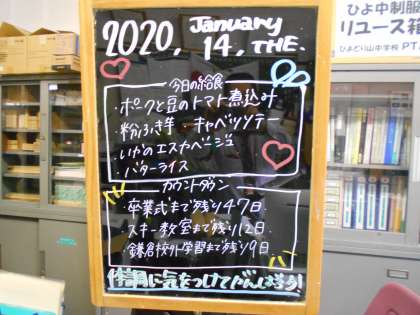 2020, January 14, THE.
今日の給食
・ポークと豆のトマト煮込み
・粉ふき芋 ・キャベツソテー
・いかのエスカベージュ
・バターライス
カウントダウン
・卒業式まで残り47日
・スキー教室まで残り12日
・鎌倉校外学習まで残り9日
体調に気をつけてがんばろう!
ひよ中制服
リユース箱
ひよどり山中学校 PT